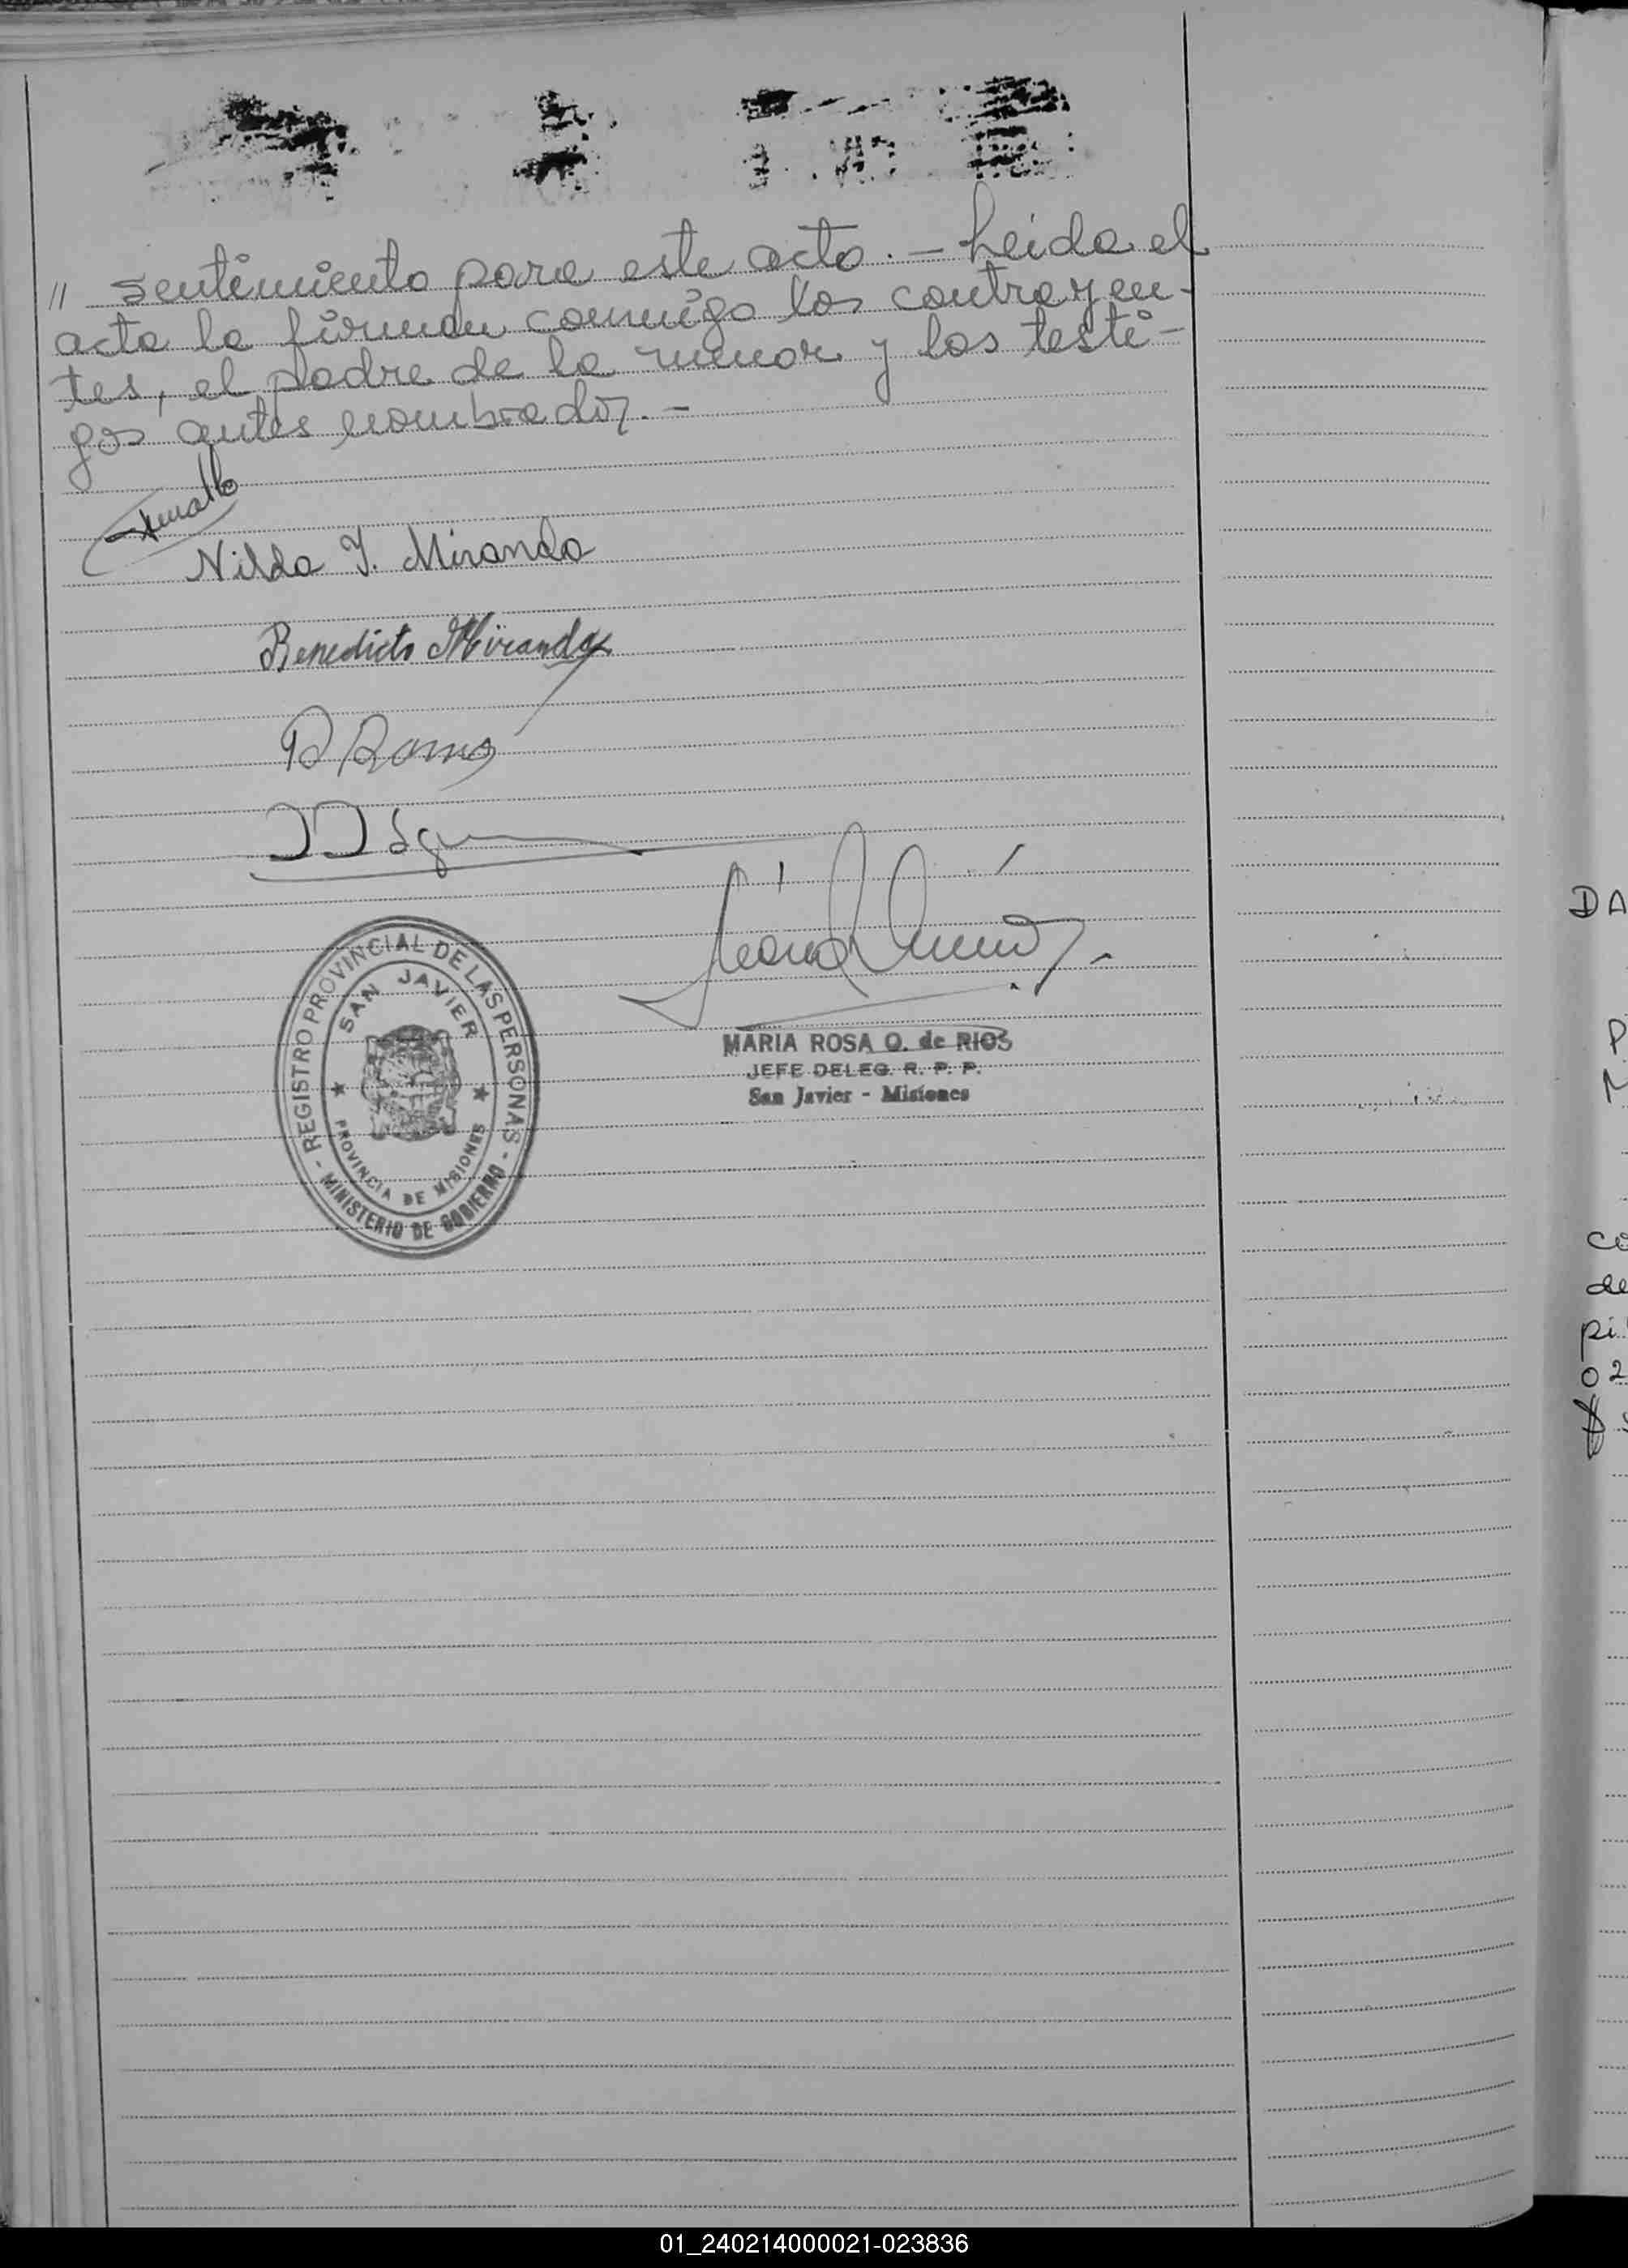 // sentimiento para este acto. - Leida el
acta la firman conmigo los contrayen-
tes, el padre de la menor y los testi-
gos antes nombrados. -
Nilda Y. Miranda
Benedicto Miranda
R Ramos
MARIA ROSA O. de RIOS
JEFE DELEG. R. P. P.
San Javier - Misiones
- REGISTRO PROVINCIAL DE LAS PERSONAS -
MINISTERIO DE GOBIERNO
SAN JAVIER
PROVINCIA DE MISIONES
DA
P
co
de
pi
02
01_240214000021-023836